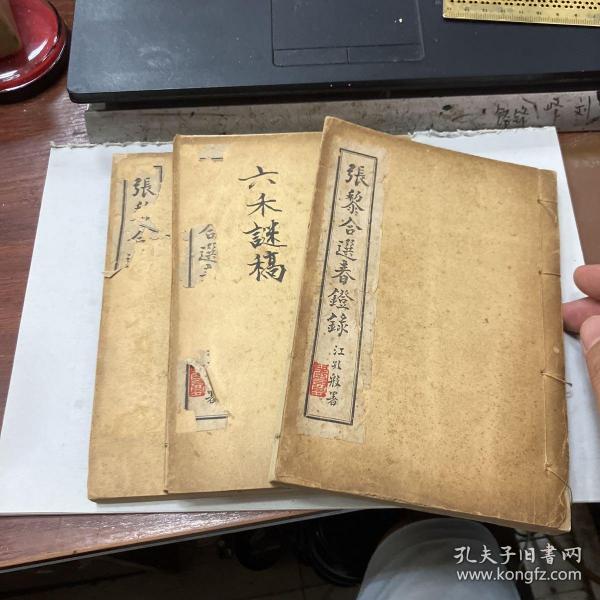 張黎合選春鐙錄
江孔殷署
六禾謎稿
合選
署
張
合
孔夫子旧书网
www.kongfz.com